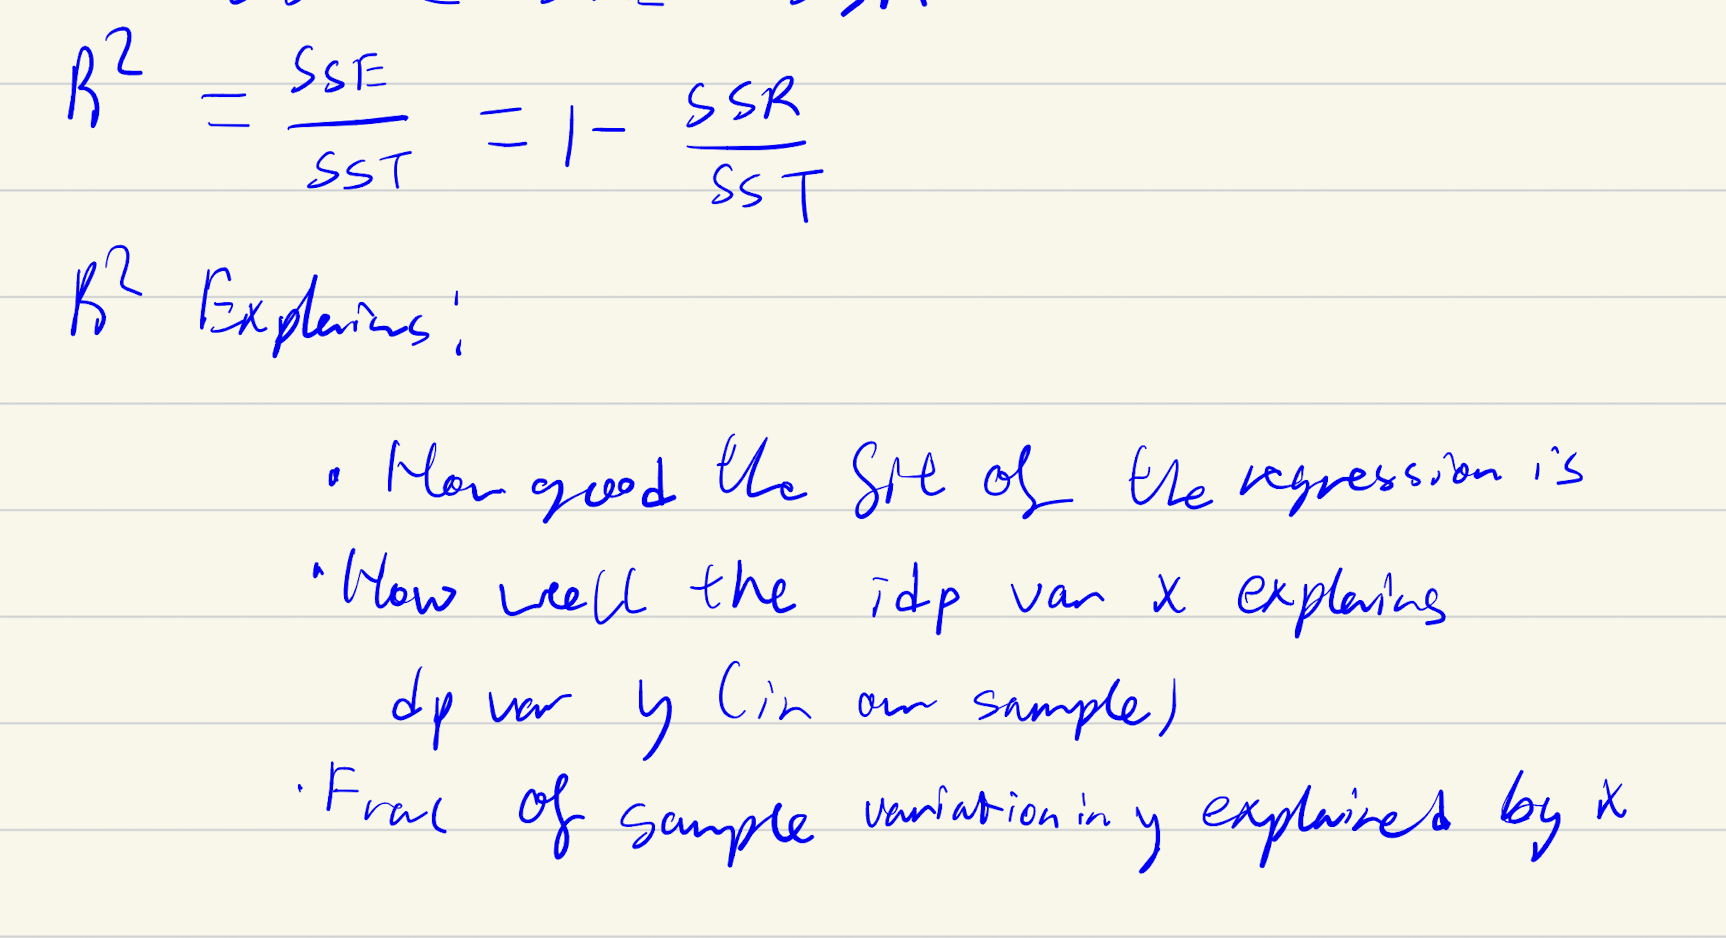 R² = SSE/SST = 1 - SSR/SST
R² Explains:
• How good the fit of the regression is
• How well the idp var x explains
dp var y (in our sample)
• Frac of sample variation in y explained by x